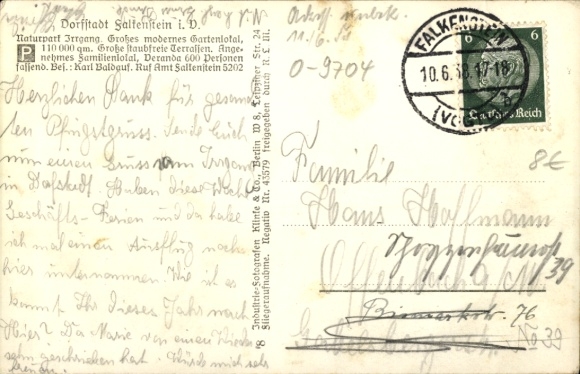 Dorfstadt Falkenstein i. V.
Naturpark Irrgang. Großes modernes Gartenlokal,
P 110 000 qm. Große staubfreie Terrassen. Ange-
nehmes Familienlokal, Veranda 600 Personen
fassend. Bes.: Karl Baldauf. Ruf Amt Falkenstein 5202
Herzlichen Dank für gesand-
ten Pfingstgruss. Sende Euch
nun einen Gruss vom Irrgang
in Dorfstadt. Haben diese Woche
Geschäfts-Ferien und da habe
ich mal einen Ausflug nach
hier unternommen. Wie ist es
kommt Ihr dieses Jahr nach
hier? Da Marie von einem Wieder-
sehn geschrieben hat. Würde mich sehr
freuen.
Industrie-Fotografen Klinke & Co., Berlin W 8, Leipziger Str. 24
Fliegeraufnahme. Negativ Nr. 43579 freigegeben durch R. L. M.
11. 6. 38
0-9704
FALKENSTEIN
10.6.38.17-18
b
(VOGTL)
6 6
Deutsches Reich
8€
Familie
Hans Hoffmann
Offenbach a M
39
Bismarckstr. 76